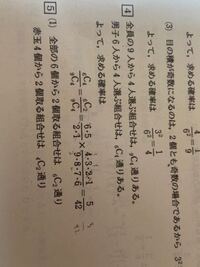 よって、求める確率は 4/6² = 1/9
(3) 目の積が奇数になるのは、2個とも奇数の場合であるから 3²
よって、求める確率は 3²/6² = 1/4
4 全員の9人から4人選ぶ組合せは、₉C₄通りある。
男子6人から4人選ぶ組合せは、₆C₄通りある。
よって、求める確率は
₆C₄/₉C₄ = ₆C₂/₉C₄ = 6・5/2・1 × 4・3・2・1/9・8・7・6 = 5/42
5 (1) 全部の6個から2個取る組合せは、₆C₂通り
赤玉4個から2個取る組合せは、₄C₂通り